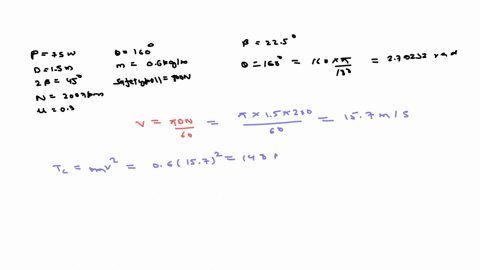 P = 75W
D = 1.5m
2β = 45°
N = 200 rpm
μ = 0.3
θ = 160°
m = 0.6 kg/m
safety pull = 800N
β = 22.5°
θ = 160° = 160 × π/180 = 2.79252 rad
V = πDN/60 = π × 1.5 × 200/60 = 15.7 m/s
Tc = mv² = 0.6(15.7)² = 148.